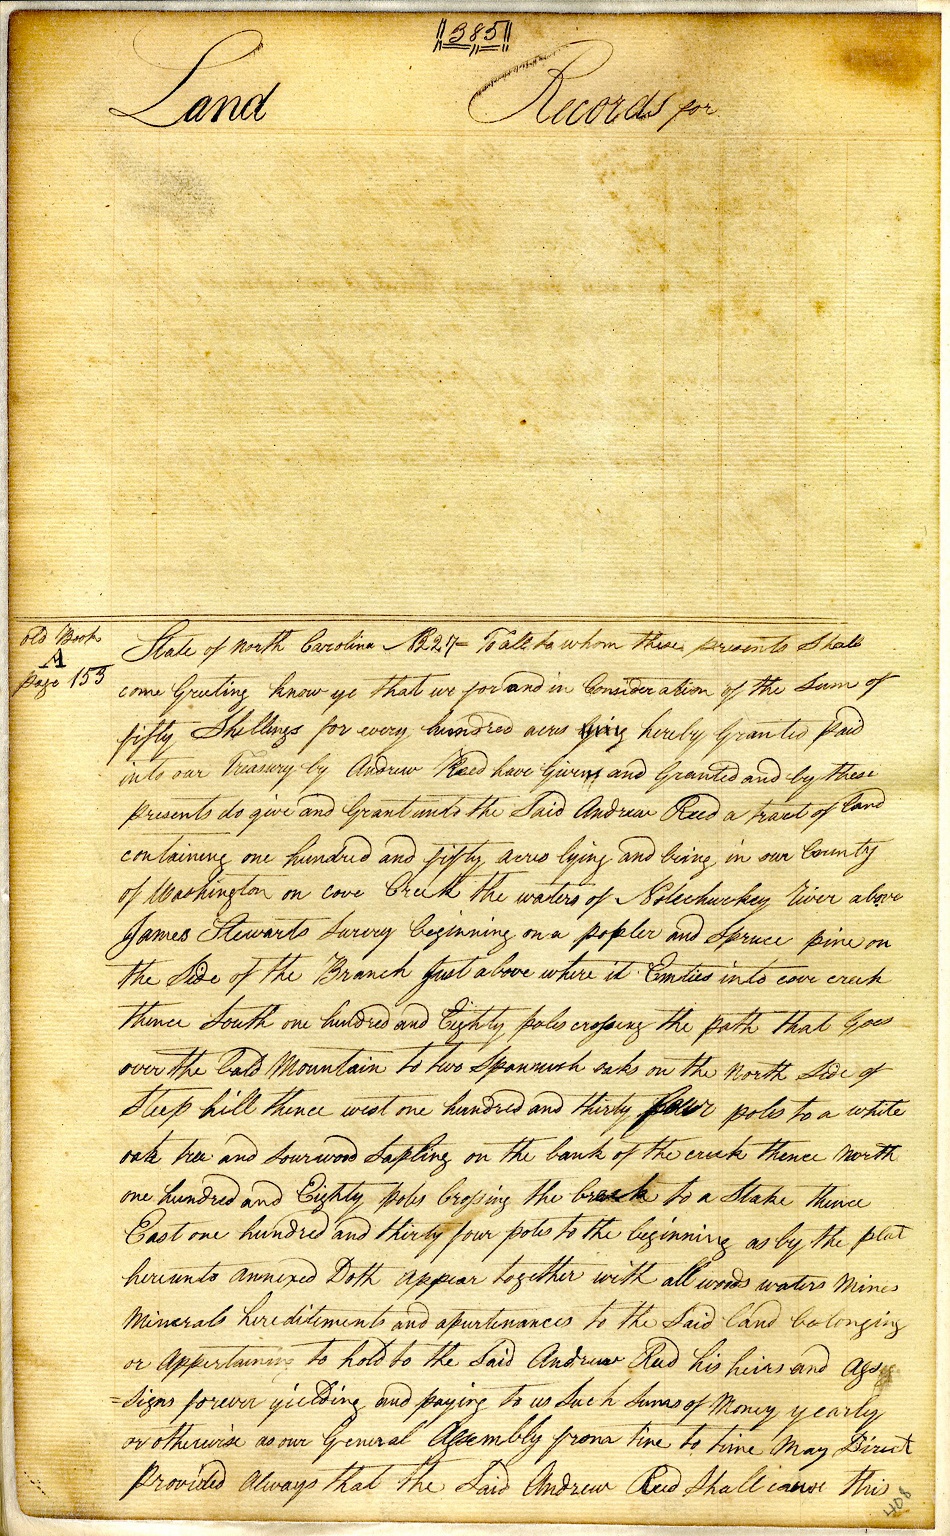 385
Land Records for
Old Book
A
page 153
State of North Carolina No 227 To all to whom these presents Shall
come Greeting know ye that we for and in Consideration of the Sum of
fifty Shellings for every hundred acres hereby Granted paid
into our Treasury by Andrew Reed have Given and Granted and by these
presents do give and Grant unto the Said Andrew Reed a tract of Land
containing one hundred and fifty acres lying and being in our County
of Washington on cove Creek the waters of Nolechuckey river above
James Stewarts Survey beginning on a popler and Spruce pine on
the Side of the Branch Just above where it Emties into cove creek
thence South one hundred and Eighty poles crossing the path that Goes
over the Bald Mountain to two Spannish oaks on the North Side of
Steep hill thence west one hundred and thirty four poles to a white
oak tree and Sourwood Sapling on the bank of the creek thence North
one hundred and Eighty poles Crossing the creek to a Stake thence
East one hundred and thirty four poles to the beginning as by the plat
hereunto annexed Doth appear together with all woods waters Mines
Minerals hereditements and apurtenances to the Said land belonging
or Appertaining to hold to the Said Andrew Reed his heirs and Ass
=signs forever yielding and paying to us Such Sums of Money yearly
or otherwise as our General Assembly from time to time May Direct
Provided Always that the Said Andrew Reed Shall cause this
408